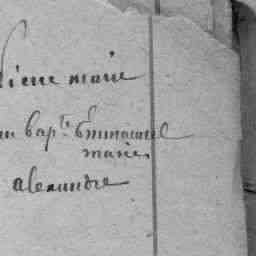 Pierre marie
bap.te Emmanuel
marie
alexandre